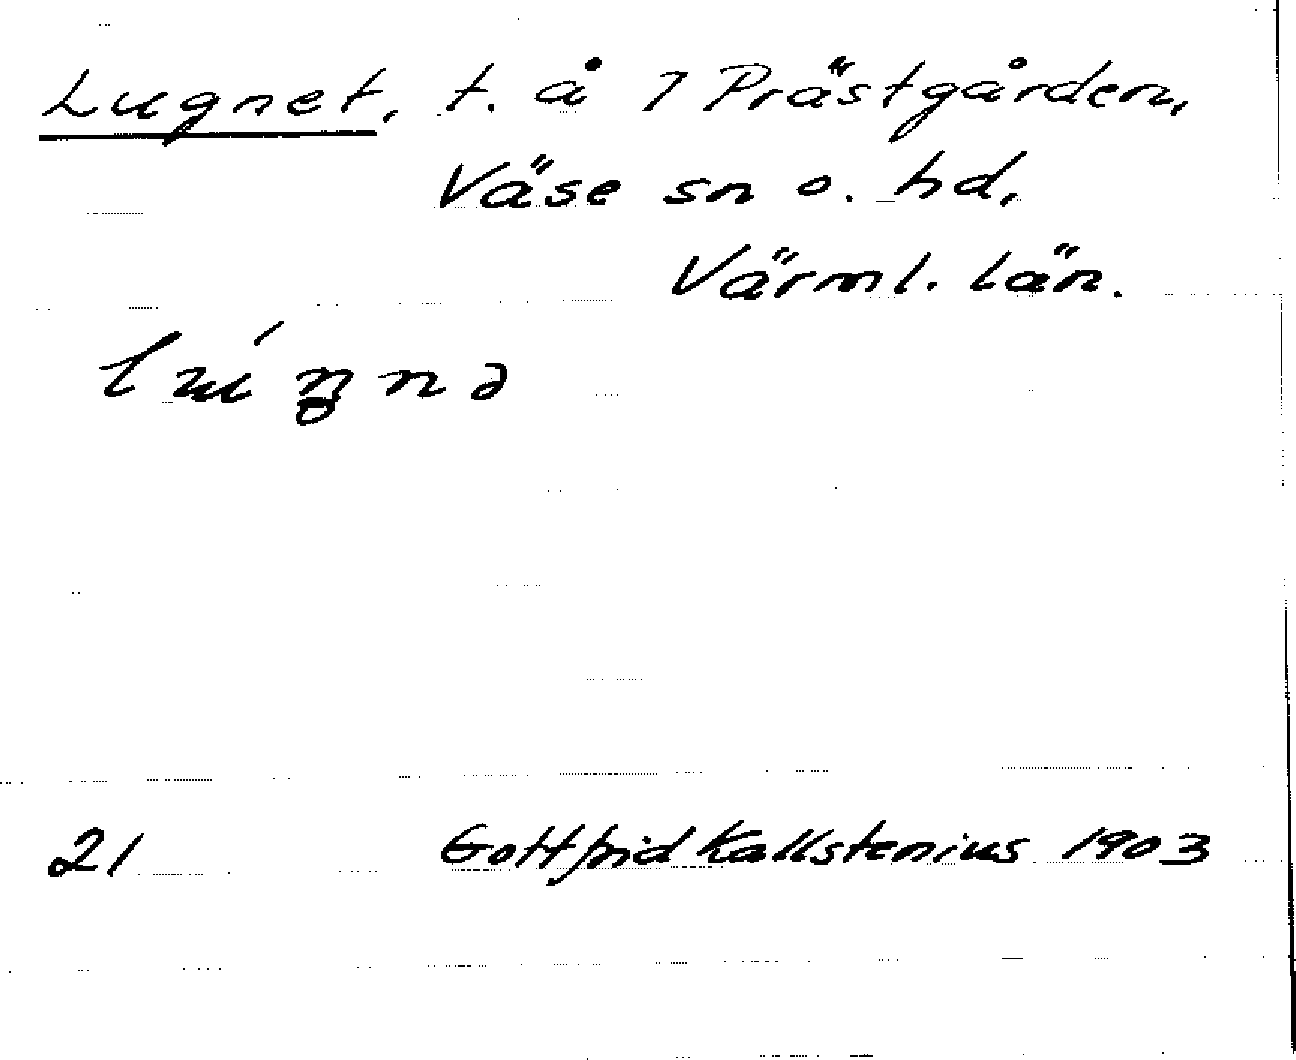 Lugnet, t. å 7 Prästgården,
Väse sn o. hd,
Värml. län.
21 Gottfrid Kallstenius 1903